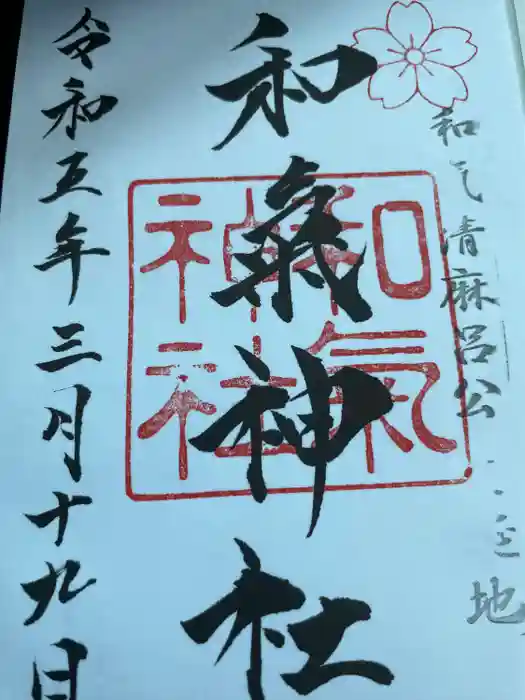 和気清麻呂公 地
和氣神社
和氣神社
令和五年三月十九日